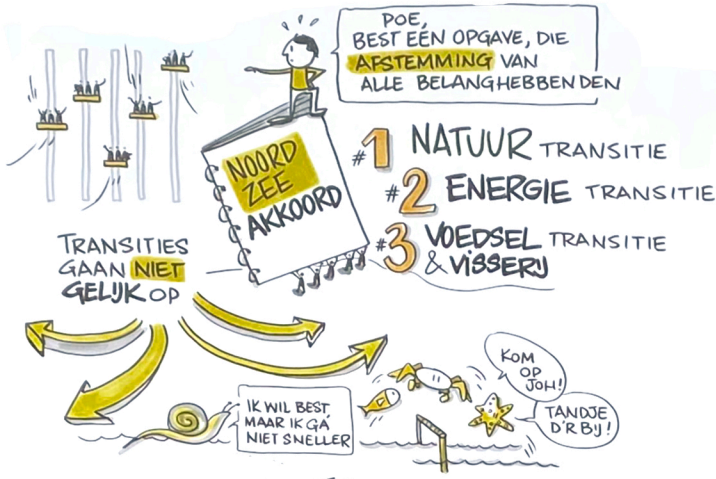 POE,
BEST EEN OPGAVE, DIE
AFSTEMMING VAN
ALLE BELANGHEBBENDEN
NOORD
ZEE
AKKOORD
#1 NATUUR TRANSITIE
#2 ENERGIE TRANSITIE
#3 VOEDSEL TRANSITIE
& VISSERIJ
TRANSITIES
GAAN NIET
GELIJK OP
IK WIL BEST,
MAAR IK GA
NIET SNELLER
KOM
OP
JOH!
TANDJE
D'R BIJ!